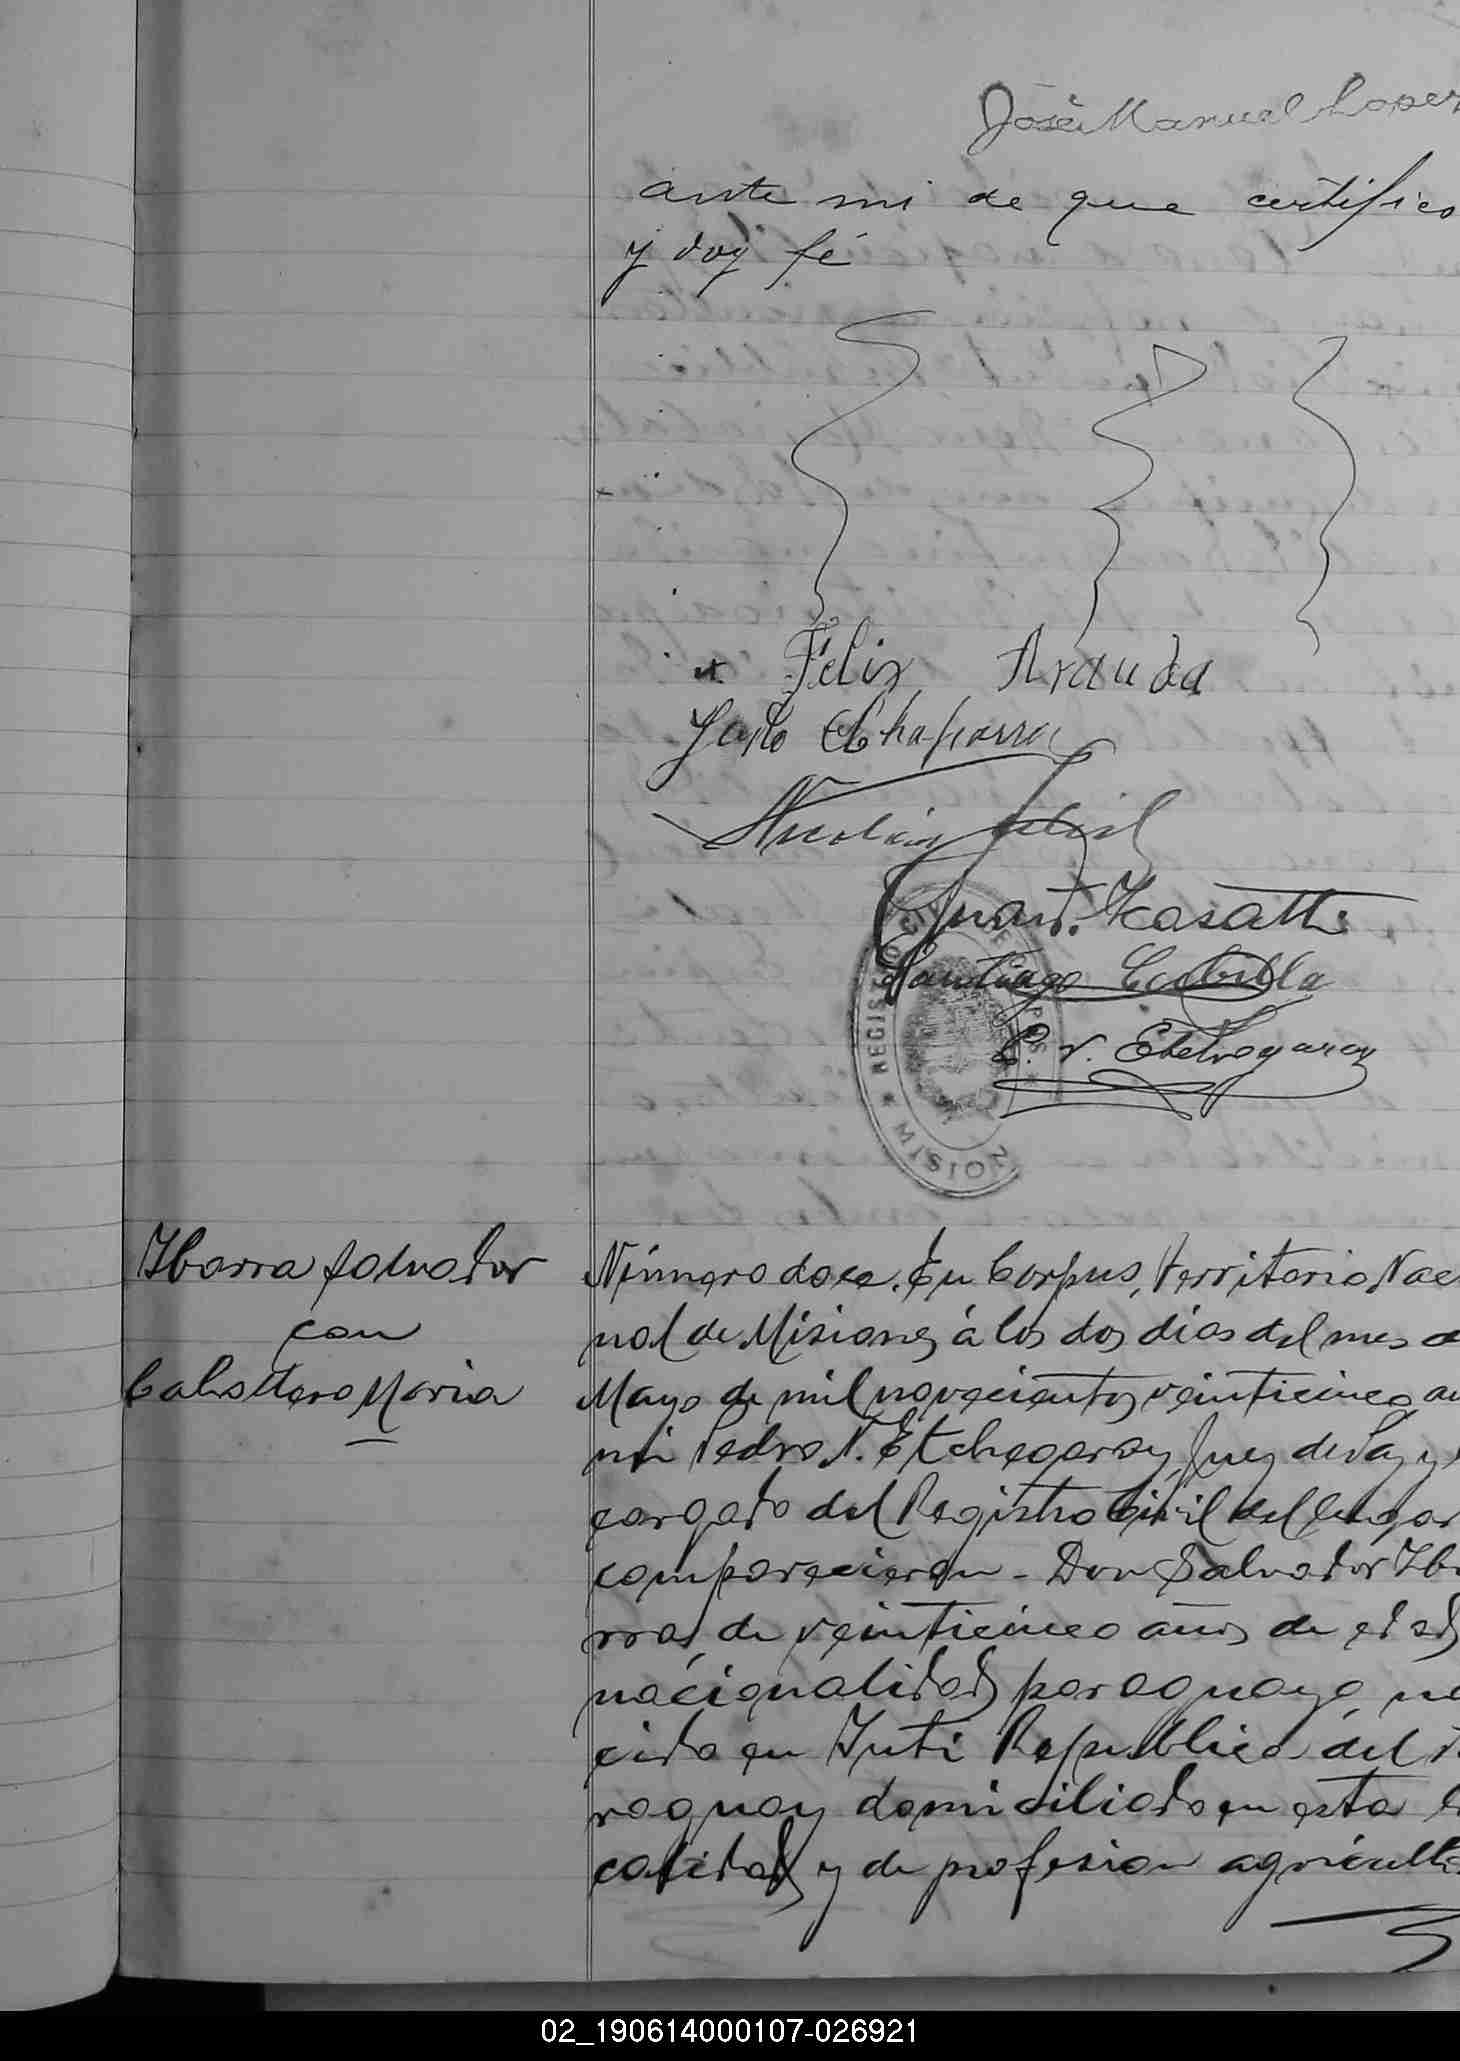 José Manuel Lopez
ante mi de que certifico
y doy fé
Felix Aranda
Justo Chaparro
Nicolás
Juan Kasatti
Santiago Cubilla
P. N. Etchegaray
REGISTRO DE
MISION
Ibarra Salvador
con
Caballero Maria
Número doce. En Corpus, Territorio Nac
nal de Misiones á los dos dias del mes d
Mayo de mil novecientos veinticinco an
mi Pedro N. Etchegaray, Juez de Paz y e
cargado del Registro Civil del lugar
comparecieron - Don Salvador Iba
rra, de veinticinco años de edad
nacionalidad paraguaya na
cido en Yuti Republica del P
raguay domiciliado en esta l
calidad y de profesion agricult
02_190614000107-026921